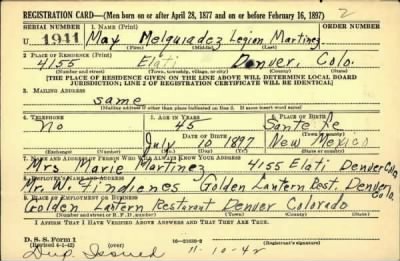 REGISTRATION CARD—(Men born on or after April 28, 1877 and on or before February 16, 1897) 2
SERIAL NUMBER 1. NAME (Print) ORDER NUMBER
U 1941 Max Melquiadez Legion Martinez
(First) (Middle) (Last)
2. PLACE OF RESIDENCE (Print)
4155 Elati Denver, Colo.
(Number and street) (Town, township, village, or city) (County) (State)
[THE PLACE OF RESIDENCE GIVEN ON THE LINE ABOVE WILL DETERMINE LOCAL BOARD
JURISDICTION; LINE 2 OF REGISTRATION CERTIFICATE WILL BE IDENTICAL]
3. MAILING ADDRESS
same
[Mailing address if other than place indicated on line 2. If same insert word same]
4. TELEPHONE 5. AGE IN YEARS 6. PLACE OF BIRTH
no 45 Sante Fe
DATE OF BIRTH (Town or county)
July 10 1897 New Mexico
(Exchange) (Number) (Mo.) (Day) (Yr.) (State or country)
7. NAME AND ADDRESS OF PERSON WHO WILL ALWAYS KNOW YOUR ADDRESS
Mrs Marie Martinez 4155 Elati Denver Colo
8. EMPLOYER'S NAME AND ADDRESS
Mr. W. Findienes Golden Lantern Rest. Denver Colo.
9. PLACE OF EMPLOYMENT OR BUSINESS
Golden Lantern Resturant Denver Colorado
(Number and street or R. F. D. number) (Town) (County) (State)
I AFFIRM THAT I HAVE VERIFIED ABOVE ANSWERS AND THAT THEY ARE TRUE.
D. S. S. Form 1
(Revised 4-1-42) (over) 16—21630-2
Dup. Issued 11-10-42